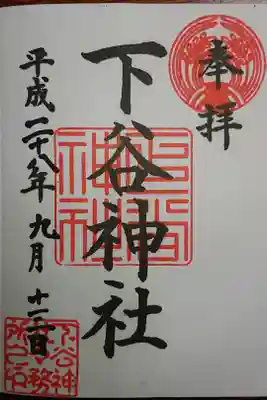 奉拝
下谷神社
下谷
神社
平成二十八年九月十二日
下谷神
社務
所之印